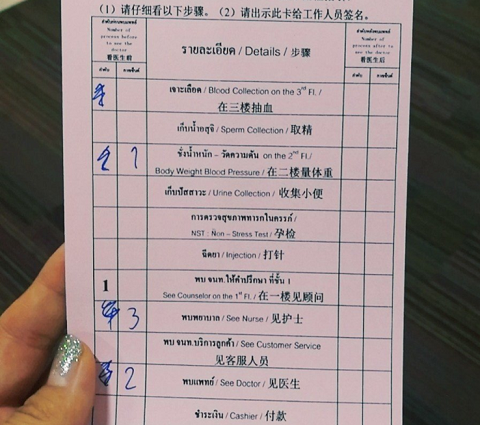 （1）请仔细看以下步骤。（2）请出示此卡给工作人员签名。
Number of
process before
to see the
doctor
看医生前
รายละเอียด / Details / 步骤
Number of
process after to
see the doctor
看医生后
เจาะเลือด / Blood Collection on the 3rd Fl. /
在三楼抽血
เก็บน้ำอสุจิ / Sperm Collection / 取精
7
ชั่งน้ำหนัก - วัดความดัน on the 2nd Fl./
Body Weight Blood Pressure / 在二楼量体重
เก็บปัสสาวะ / Urine Collection / 收集小便
การตรวจสุขภาพทารกในครรภ์ /
NST : Non - Stress Test / 孕检
ฉีดยา / Injection / 打针
1
พบ จนท.ให้คำปรึกษา ที่ชั้น 1
See Counselor on the 1st Fl. / 在一楼见顾问
3
พบพยาบาล / See Nurse / 见护士
พบ จนท.บริการลูกค้า / See Customer Service
见客服人员
2
พบแพทย์ / See Doctor / 见医生
ชำระเงิน / Cashier / 付款